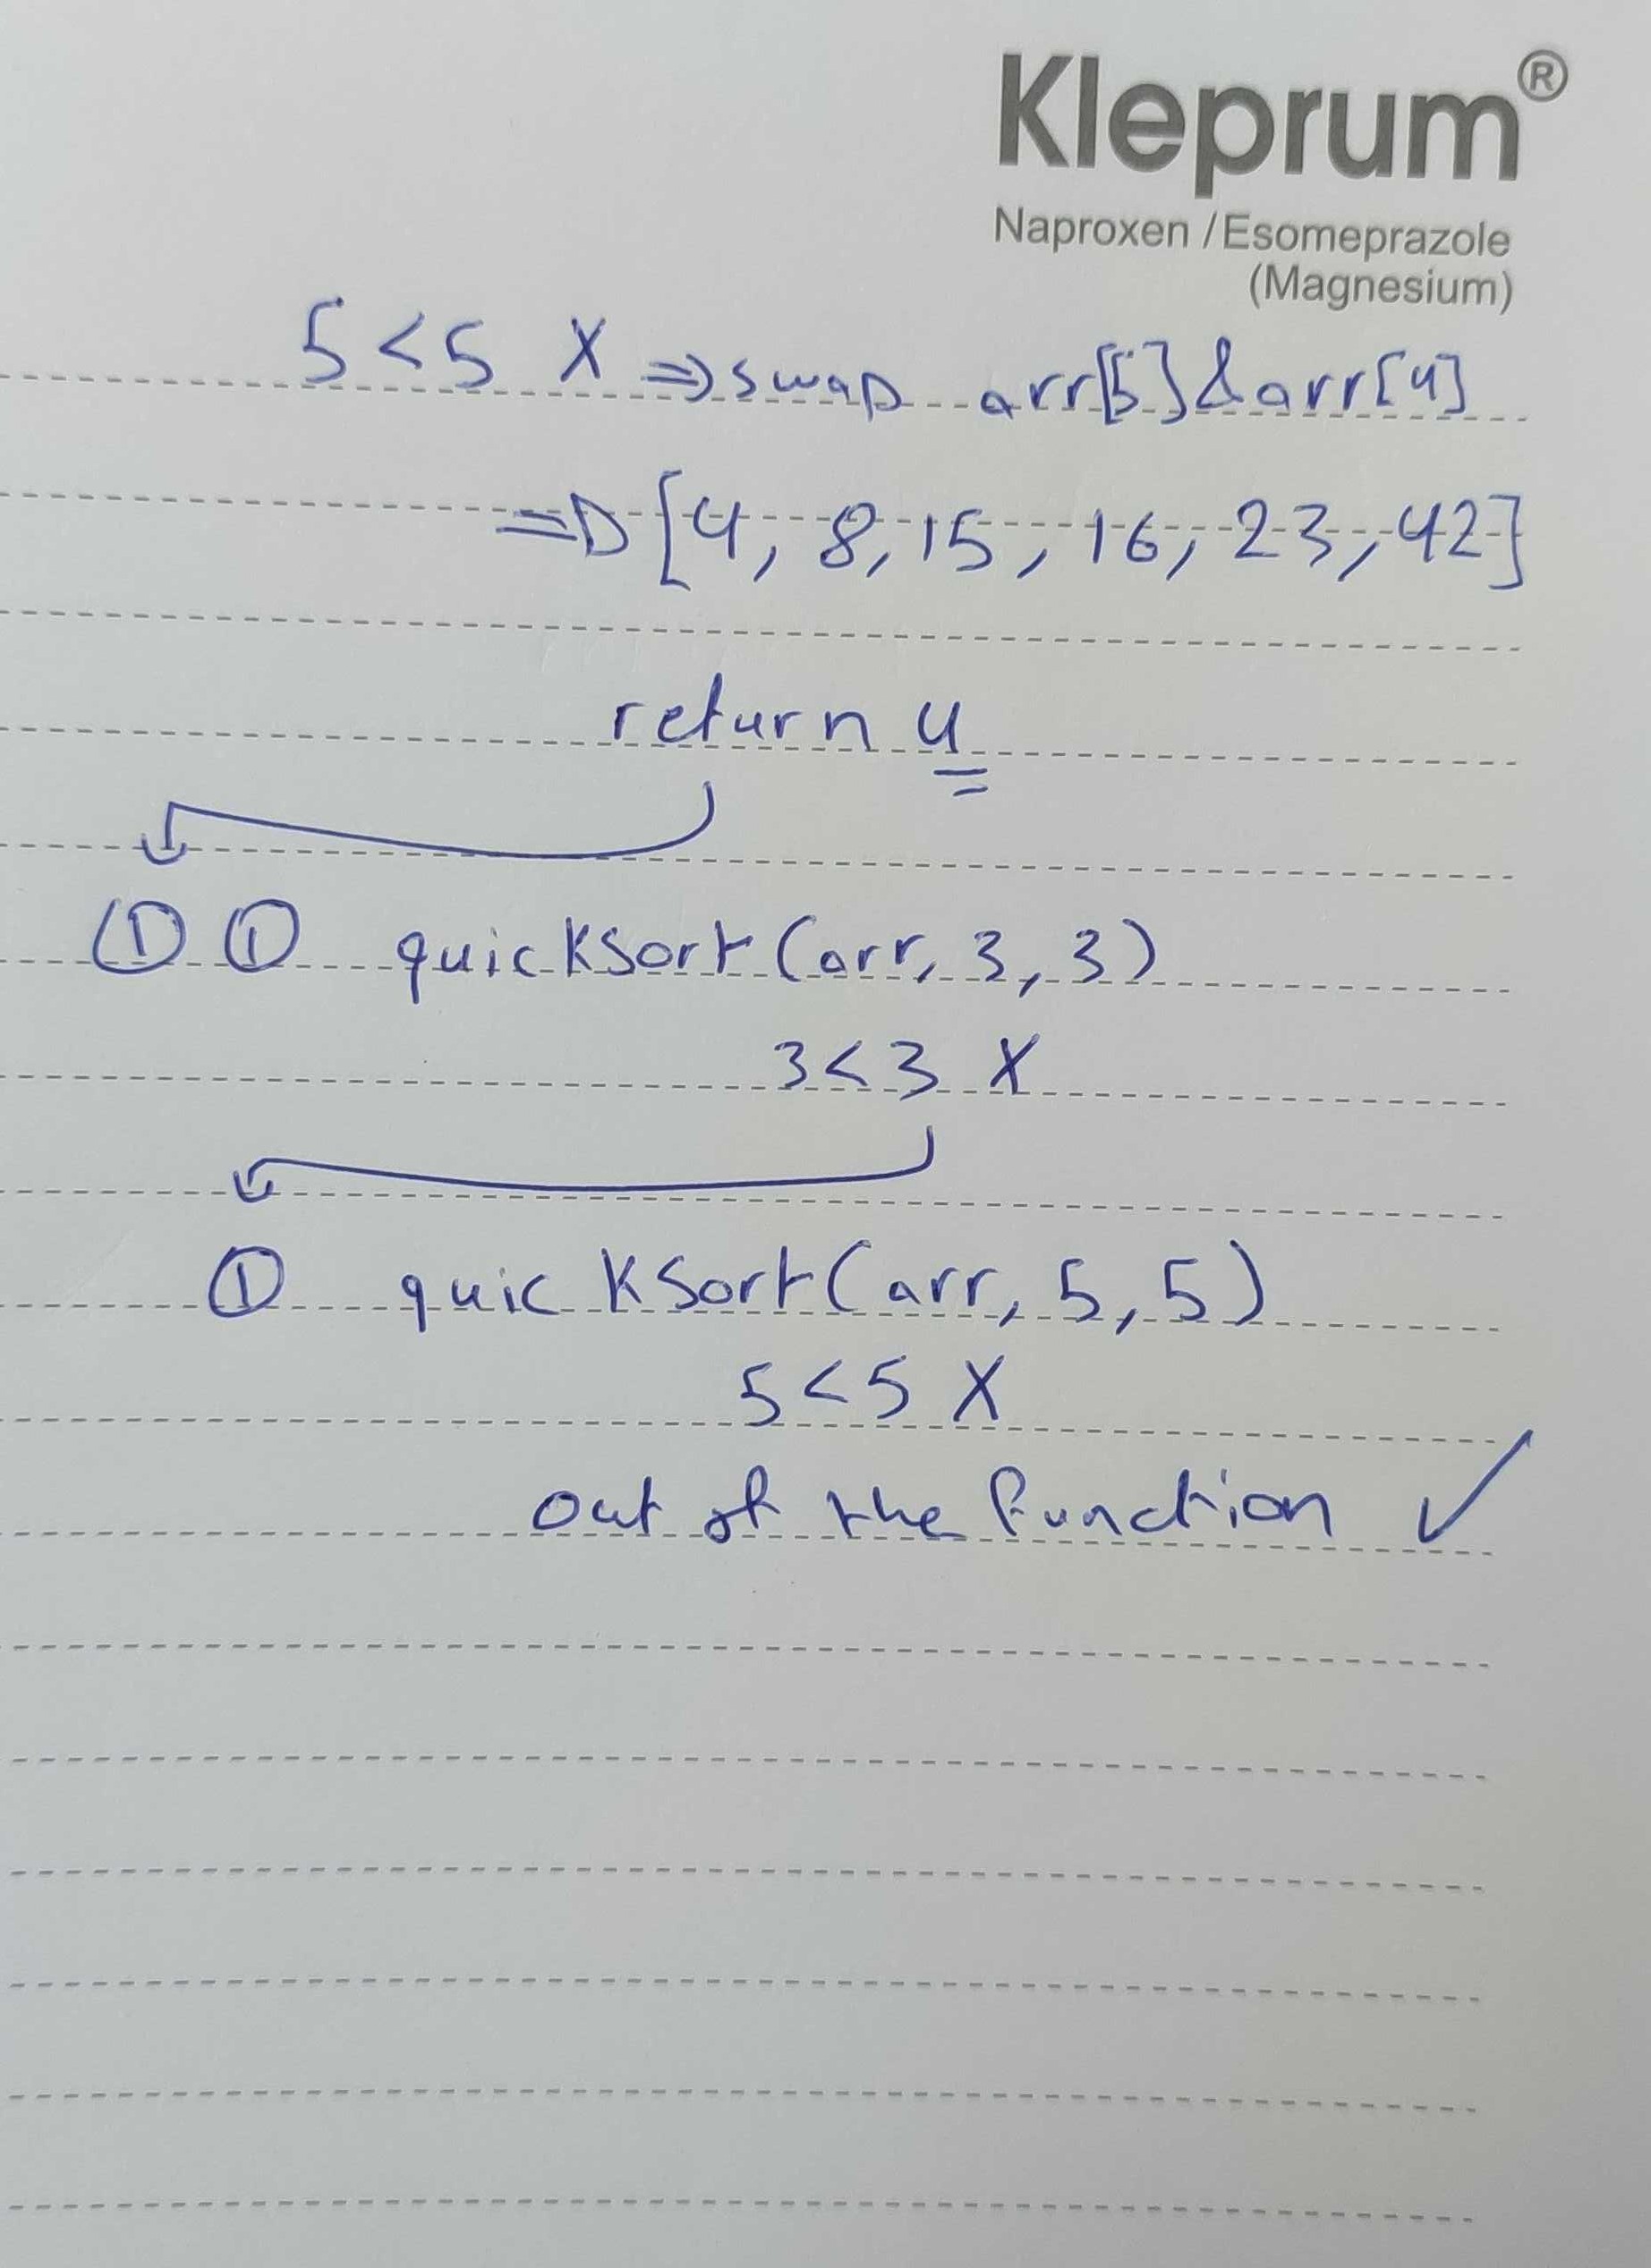 Kleprum®
Naproxen / Esomeprazole
(Magnesium)
5 < 5 X ⇒ swap arr[5] & arr[4]
⇒ [4, 8, 15, 16, 23, 42]
return 4
① ① quickSort(arr, 3, 3)
3 < 3 X
① quickSort(arr, 5, 5)
5 < 5 X
out of the function ✓